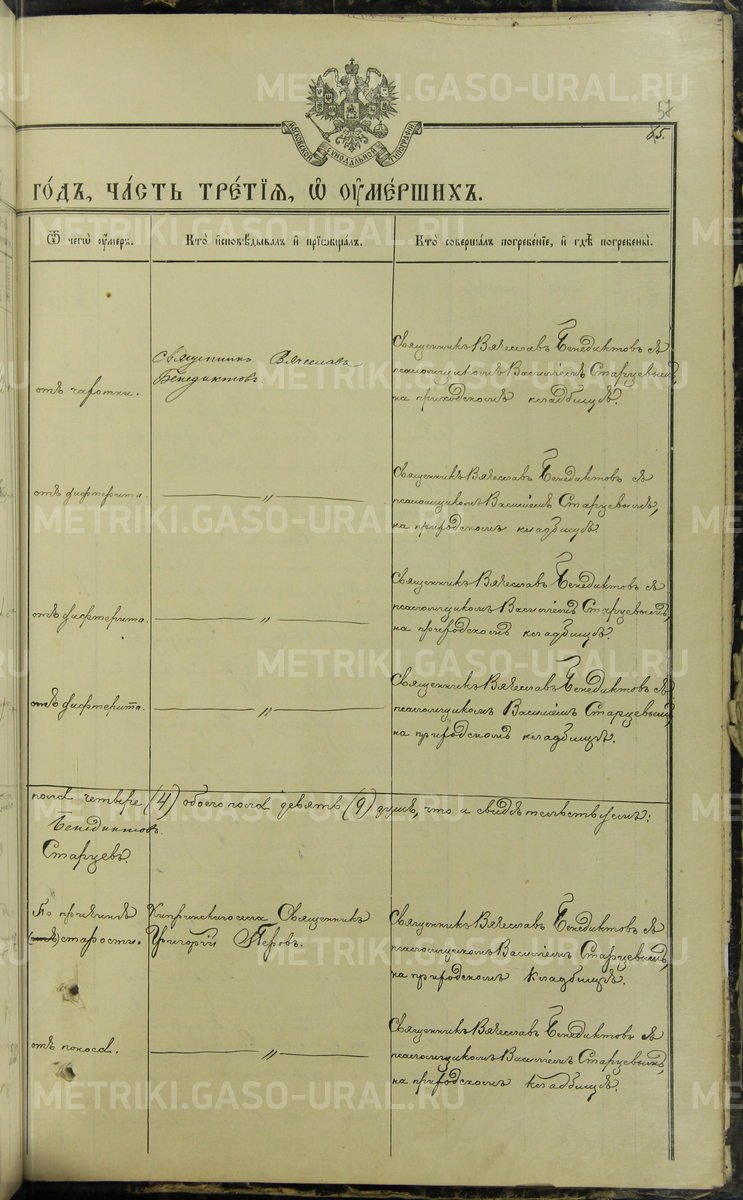 METRIKI.GASO-URAL.RU
57
65.
МОСКОВСКОЙ СѴНОДАЛЬНОЙ ТИПОГРАФІИ
ГО́ДЪ, ЧА́СТЬ ТРЕ́ТІѦ, Ѽ ОУ҆МЕ́РШИХЪ.
Ѿ чегѡ̀ оу҆́меръ.
Кто̀ и҆сповѣ́дывалъ и҆ прїѡбща́лъ.
Кто̀ соверша́лъ погребе́нїе, и҆ гдѣ̀ погребены̀.
отъ чахотки.
Священникъ Вячеславъ
Бенедиктовъ.
Священникъ Вячеславъ Бенедиктовъ съ
псаломщикомъ Василіемъ Старцевымъ,
на приходскомъ кладбищѣ.
METRIKI.GASO-URAL.RU
отъ дифтерита.
— " —
Священникъ Вячеславъ Бенедиктовъ съ
псаломщикомъ Василіемъ Старцевымъ,
на приходскомъ кладбищѣ.
METRIKI.GASO-URAL.RU
отъ дифтерита.
— " —
Священникъ Вячеславъ Бенедиктовъ съ
псаломщикомъ Василіемъ Старцевымъ,
на приходскомъ кладбищѣ.
METRIKI.GASO-URAL.RU
отъ дифтерита.
— " —
Священникъ Вячеславъ Бенедиктовъ съ
псаломщикомъ Василіемъ Старцевымъ,
на приходскомъ кладбищѣ.
пола четыре (4) обоего пола девять (9) душъ, что и свидѣтельствуемъ:
Бенедиктовъ.
Старцевъ.
По причинѣ
(отъ) старости.
Кипринскаго села Священникъ
Григорій Перовъ.
Священникъ Вячеславъ Бенедиктовъ съ
псаломщикомъ Василіемъ Старцевымъ,
на приходскомъ кладбищѣ.
отъ поноса.
— " —
Священникъ Вячеславъ Бенедиктовъ съ
псаломщикомъ Василіемъ Старцевымъ,
на приходскомъ кладбищѣ.
METRIKI.GASO-URAL.RU